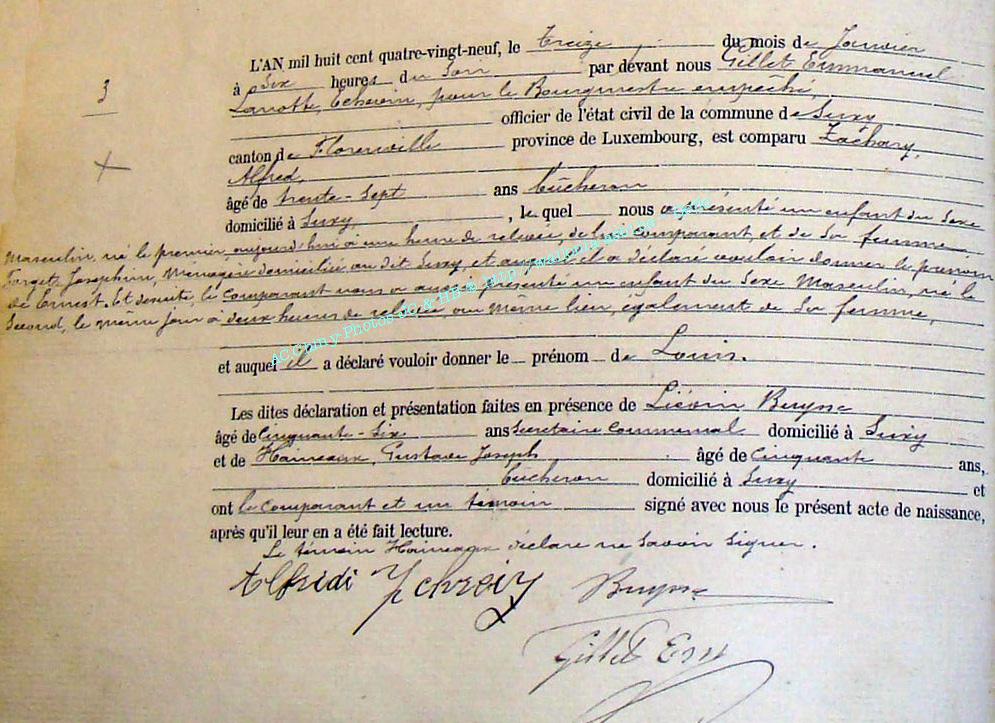 L'AN mil huit cent quatre-vingt-neuf, le treize du mois de Janvier
3
à Six heures du Soir par devant nous Gillet Emmanuel
Lanotte, Echevin, pour le Bourgmestre empêché,
officier de l'état civil de la commune de Suxy
canton de Florenville province de Luxembourg, est comparu Zachary,
Alfred,
âgé de trente-Sept ans bûcheron
domicilié à Suxy, le quel nous a présenté un enfant du Sexe
Masculin, né le premier, aujourd'hui à une heure de relevée, de lui comparant, et de Sa femme
Forget, Joséphine, Ménagère domiciliée au dit Suxy, et auquel il a déclaré vouloir donner le prénom
de Ernest. Et ensuite, le comparant nous a aussi présenté un enfant du Sexe Masculin, né le
Second, le même jour à deux heures de relevée au même lieu, également de Sa femme,
et auquel il a déclaré vouloir donner le prénom de Louis.
Les dites déclaration et présentation faites en présence de Liévin Buysse
âgé de Cinquante-Six ans Secrétaire Communal domicilié à Suxy
et de Haineaux, Gustave Joseph âgé de Cinquante ans,
bûcheron domicilié à Suxy et
ont le comparant et un témoin signé avec nous le présent acte de naissance,
après qu'il leur en a été fait lecture.
Le témoin Haineaux déclare ne Savoir Signer.
Buysse
Gillet